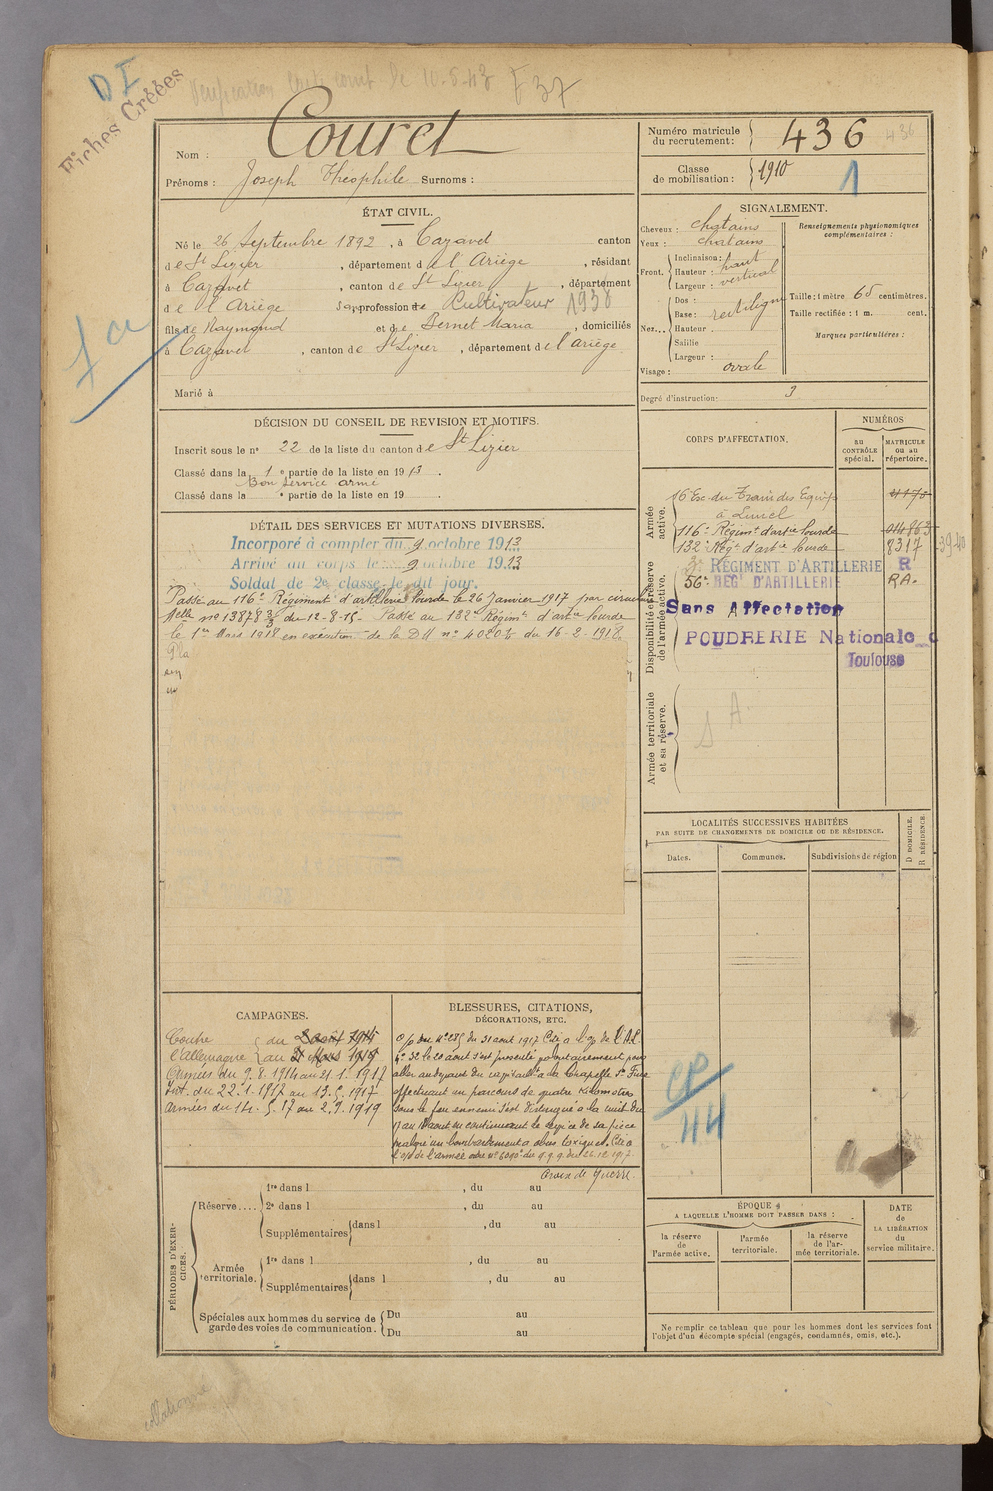 D I
Fiches Créées
Vérification le 10-5-43 F 37
Nom : Couret
Prénoms : Joseph Théophile Surnoms :
Numéro matricule du recrutement : 436 436
Classe de mobilisation : 1910
1
ÉTAT CIVIL.
Né le 26 Septembre 1892, à Cazavet canton
de St Lizier, département de l'Ariège, résidant
à Cazavet, canton de St Lizier, département
de l'Ariège sa profession de Cultivateur 1938
fils de Raymond et de Bernet Maria, domiciliés
à Cazavet, canton de St Lizier, département de l'Ariège
Marié à
SIGNALEMENT.
Cheveux : chatains
Yeux : chatains
Front. Inclinaison :
Hauteur : haut
Largeur : vertical
Nez... Dos : rectiligne
Base :
Hauteur :
Saillie
Largeur :
Visage : ovale
Renseignements physionomiques complémentaires :
Taille : 1 mètre 65 centimètres.
Taille rectifiée : 1 m. cent.
Marques particulières :
Degré d'instruction : 3
DÉCISION DU CONSEIL DE REVISION ET MOTIFS.
Inscrit sous le n° 22 de la liste du canton de St Lizier
Classé dans la 1e partie de la liste en 1913.
Bon Service armé
Classé dans la e partie de la liste en 19
DÉTAIL DES SERVICES ET MUTATIONS DIVERSES.
Incorporé à compter du 9 octobre 1913
Arrivé au corps le 9 octobre 1913
Soldat de 2e classe le dit jour.
Passé au 116e Régiment d'artillerie lourde le 26 Janvier 1917 par circulaire
Melle n° 13878 3/3 du 12-8-15. Passé au 132e Régimt d'artie lourde
le 1er Mars 1918 en exécution de la D.M n° 4020 du 16-2-1918.
CORPS D'AFFECTATION.
NUMÉROS
au CONTRÔLE spécial.
MATRICULE ou au répertoire.
Armée active.
16 Esc. du Train des Equip
à Lunel
116e Régimt d'artie lourde
132e Régt d'artie lourde 8317
Disponibilité et réserve de l'armée active.
3e RÉGIMENT D'ARTILLERIE R
56e REGt D'ARTILLERIE RA.
Sans Affectation
POUDRERIE Nationale d
Toulouse
Armée territoriale et sa réserve.
S A.
LOCALITÉS SUCCESSIVES HABITÉES
PAR SUITE DE CHANGEMENTS DE DOMICILE OU DE RÉSIDENCE.
Dates.
Communes.
Subdivisions de région
D DOMICILE.
R RÉSIDENCE.
CAMPAGNES.
Contre du
l'Allemagne au
Armées du 9.8.1914 au 21.1.1917
Int. du 22.1.1917 au 13.5.1917
armées du 14.5.17 au 2.9.1919
BLESSURES, CITATIONS,
DÉCORATIONS, ETC.
31 aout 1917 Cité a l'o/
le 20 aout s'est présenté volontairement pour
aller au devant du a la Chapelle Ste
effectuant un parcours de quatre kilomètres
sous le feu ennemi S'est distingué a la nuit du
17 au 18 aout en continuant le service de sa pièce
malgré un bombardement a obus toxiques. Cité a
l'o/ de l'armée n° 6090 du 26.12.1917.
Croix de Guerre.
CP
44
PÉRIODES D'EXERCICES.
Réserve....
1re dans l , du au
2e dans l , du au
Supplémentaires dans l , du au
Armée territoriale.
1re dans l , du au
Supplémentaires dans l , du au
Spéciales aux hommes du service de garde des voies de communication.
Du au
Du au
ÉPOQUE
A LAQUELLE L'HOMME DOIT PASSER DANS :
la réserve de l'armée active.
l'armée territoriale.
la réserve de l'armée territoriale.
DATE de LA LIBÉRATION du service militaire.
Ne remplir ce tableau que pour les hommes dont les services font
l'objet d'un décompte spécial (engagés, condamnés, omis, etc.).
collationné